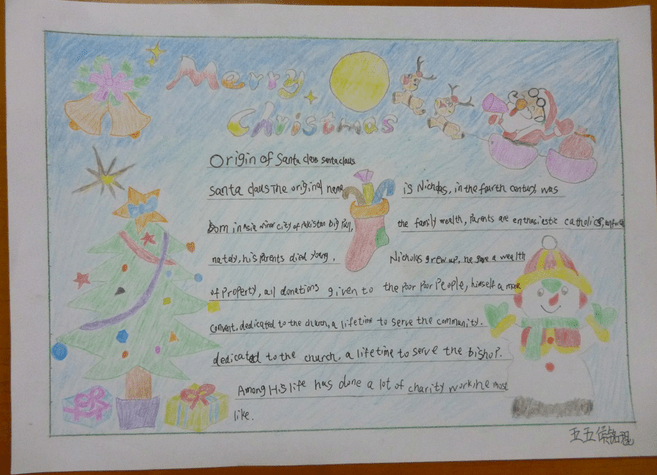 Merry
Christmas
Origin of Santa claus santa claus
santa claus The original name is Nicholas, in the fourth century was
Born in asia minor city of the family wealth, parents are enthusiastic catholics,
nately, his parents died young. Nicholas grew up, he gave a wealth
of property, all donations given to the poor poor people, himself a
convent, dedicated to the church, a lifetime to serve the community.
dedicated to the church, a lifetime to serve the bishop.
Among His life has done a lot of charity work he most
like.
五五